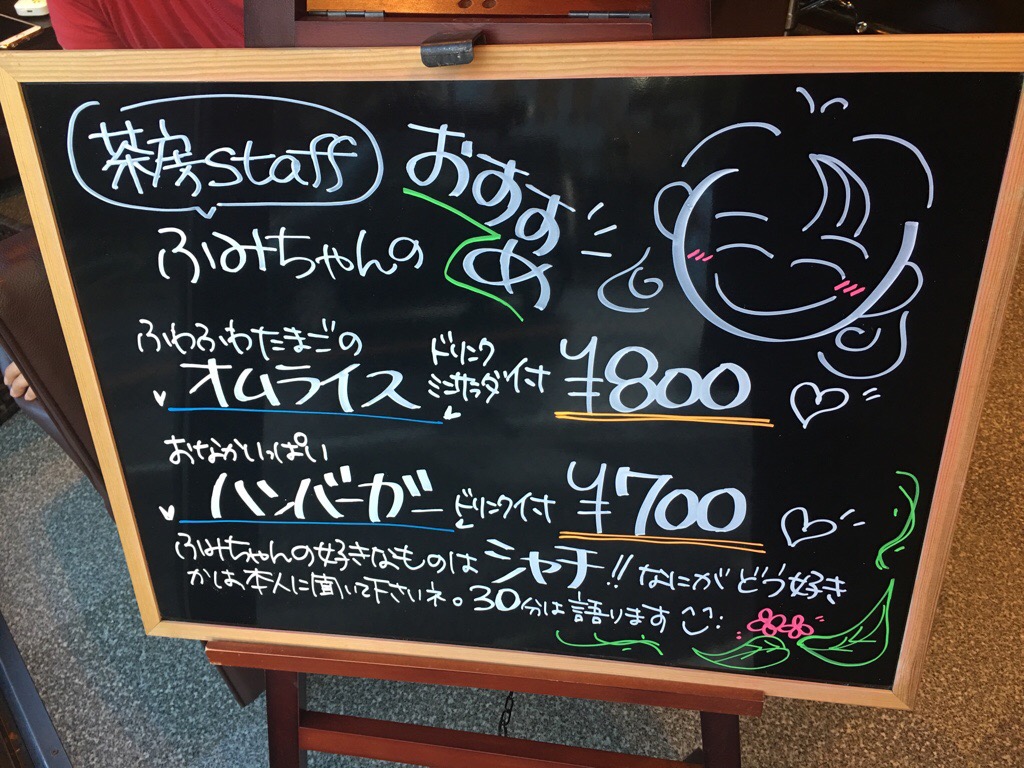 茶房staff
ふみちゃんの
おすすめ
ふわふわたまごの
オムライス
ドリンク
ミニサラダ付
¥800
おなかいっぱい
ハンバーガー
ドリンク付
¥700
ふみちゃんの好きなものはシャチ!! なにがどう好き
かは、本人に聞いて下さいネ。30分は語ります